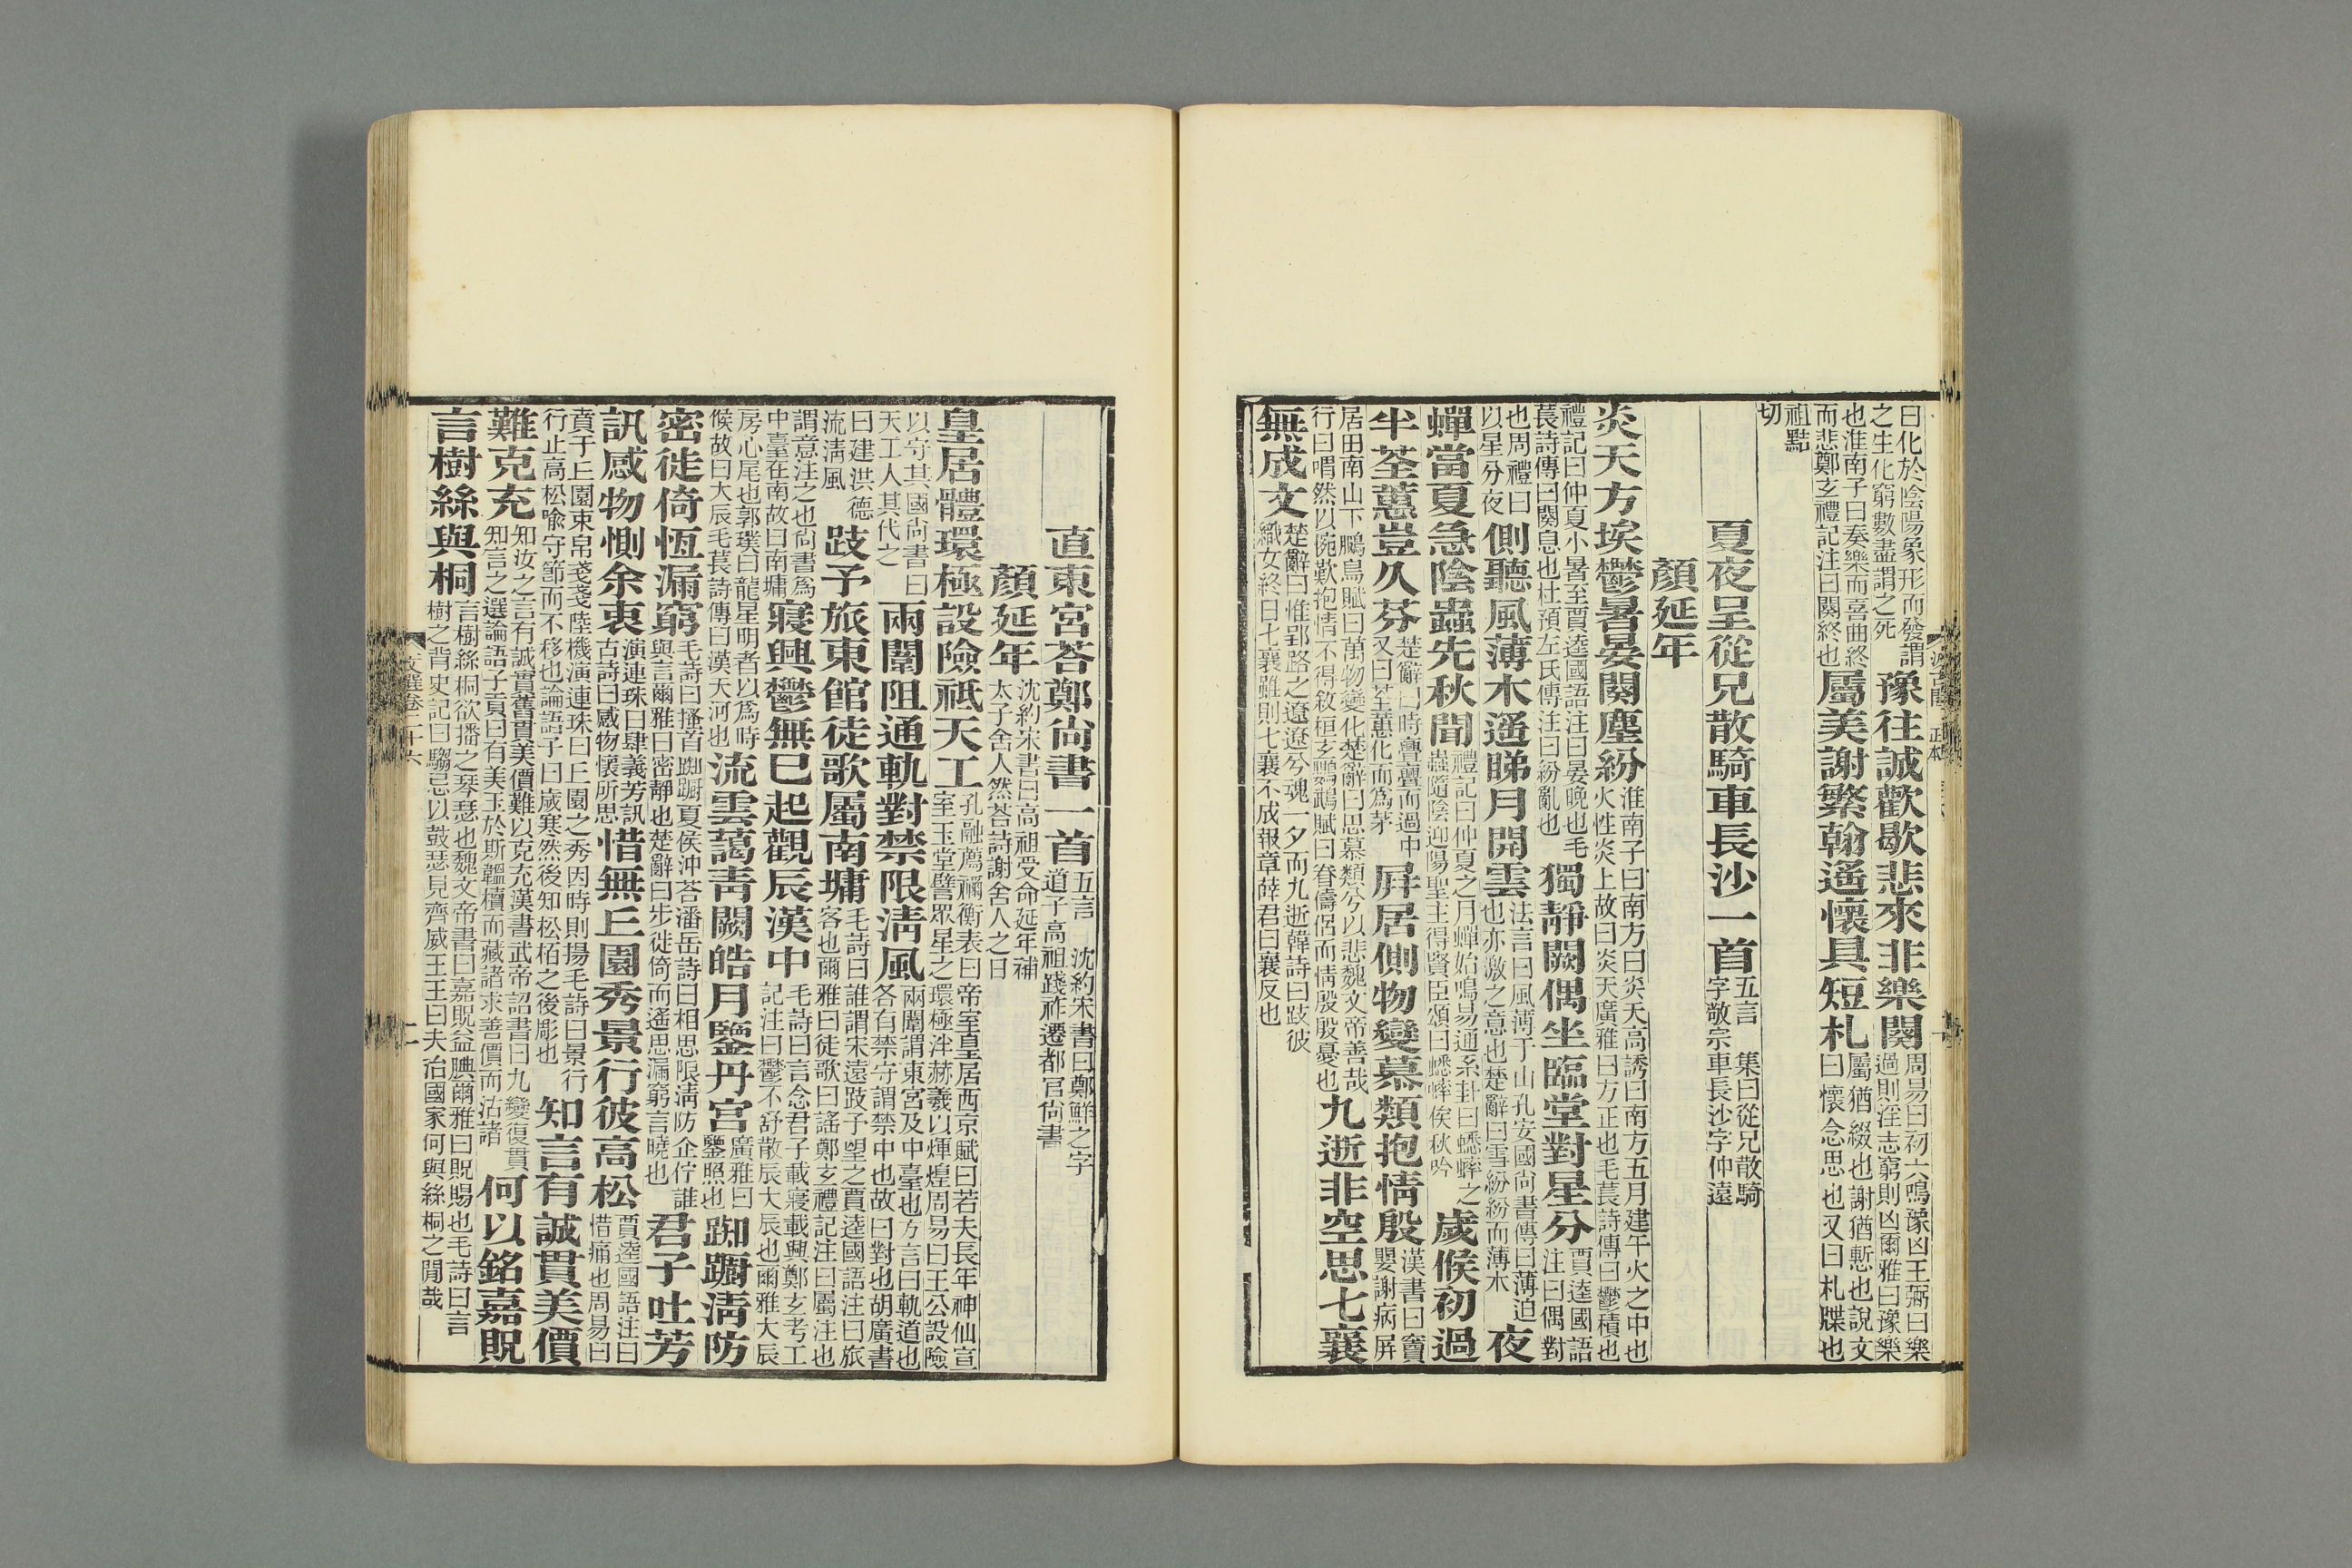 曰化於陰陽象形而發謂
之生化窮數盡謂之死豫往誠歡歇悲來非樂闋周易曰初六鳴豫凶王弼曰樂
過則淫志窮則凶爾雅曰豫樂
也淮南子曰奏樂而喜曲終
而悲鄭玄禮記注曰闋終也屬美謝繁翰遙懷具短札屬猶綴也謝猶慙也說文
曰懷念思也又曰札牒也
祖點
切
夏夜呈從兄散騎車長沙一首五言　集曰從兄散騎
字敬宗車長沙字仲遠
顏延年
炎天方埃鬱暑晏闋塵紛淮南子曰南方曰炎天高誘曰南方五月建午火之中也
火性炎上故曰炎天廣雅曰方正也毛萇詩傳曰鬱積也
禮記曰仲夏小暑至賈逵國語注曰晏晚也毛
萇詩傳曰闋息也杜預左氏傳注曰紛亂也獨靜闕偶坐臨堂對星分賈逵國語
注曰偶對
也周禮曰
以星分夜側聽風薄木遙睇月開雲法言曰風薄于山孔安國尙書傳曰薄迫
也亦激之意也楚辭曰雪紛紛而薄木夜
蟬當夏急陰蟲先秋聞禮記曰仲夏之月蟬始鳴易通系卦曰蟋蟀之
蟲隨陰迎陽聖主得賢臣頌曰蟋蟀俟秋吟歲候初過
半荃蕙豈久芬楚辭曰時亹亹而過中
又曰荃蕙化而爲茅屛居側物變慕類抱情殷漢書曰竇
嬰謝病屛
居田南山下鵩鳥賦曰萬物變化楚辭曰思慕類兮以悲魏文帝善哉
行曰喟然以惋歎抱情不得敘桓玄鸚鵡賦曰眷儔侶而情殷殷憂也九逝非空思七襄
無成文楚辭曰惟郢路之遼遼兮魂一夕而九逝韓詩曰跂彼
織女終日七襄雖則七襄不成報章薛君曰襄反也
直東宮荅鄭尙書一首五言　沈約宋書曰鄭鮮之字
道子高祖踐祚遷都官尙書
顏延年沈約宋書曰高祖受命延年補
太子舍人然荅詩謝舍人之日
皇居體環極設險祗天工孔融薦禰衡表曰帝室皇居西京賦曰若夫長年神仙宣
室玉堂譬眾星之環極泮赫羲以煇煌周易曰王公設險
以守其國尙書曰
天工人其代之兩闈阻通軌對禁限淸風兩闈謂東宮及中臺也方言曰軌道也
各有禁守謂禁中也故曰對也胡廣書
曰建洪德
流淸風跂予旅東館徒歌屬南墉毛詩曰誰謂宋遠跂予望之賈逵國語注曰旅
客也爾雅曰徒歌曰謠鄭玄禮記注曰屬注也
謂意注之也尙書爲
中臺在南故曰南墉寢興鬱無已起觀辰漢中毛詩曰言念君子載寢載興鄭玄考工
記注曰鬱不舒散辰大辰也爾雅大辰
房心尾也郭璞曰龍星明者以爲時
候故曰大辰毛萇詩傳曰漢天河也流雲藹靑闕皓月鑒丹宮廣雅曰
鑒照也踟躕淸防
密徙倚恆漏窮毛詩曰搔首踟躕夏侯沖荅潘岳詩曰相思限淸防企佇誰
與言爾雅曰密靜也楚辭曰步徙倚而遙思漏窮言曉也君子吐芳
訊感物惻余衷演連珠曰肆義芳訊
古詩曰感物懷所思惜無丘園秀景行彼高松賈逵國語注曰
惜痛也周易曰
賁于丘園束帛戔戔陸機演連珠曰丘園之秀因時則揚毛詩曰景行
行止高松喩守節而不移也論語子曰歲寒然後知松栢之後彫也知言有誠貫美價
難克充知汝之言有誠實舊貫美價難以克充漢書武帝詔書曰九變復貫
知言之選論語子貢曰有美玉於斯韞櫝而藏諸求善價而沽諸何以銘嘉貺
言樹絲與桐言樹絲桐欲播之琴瑟也魏文帝書曰嘉貺益腆爾雅曰貺賜也毛詩曰言
樹之背史記曰騶忌以鼓瑟見齊威王王曰夫治國家何與絲桐之閒哉
文選卷二十六
二